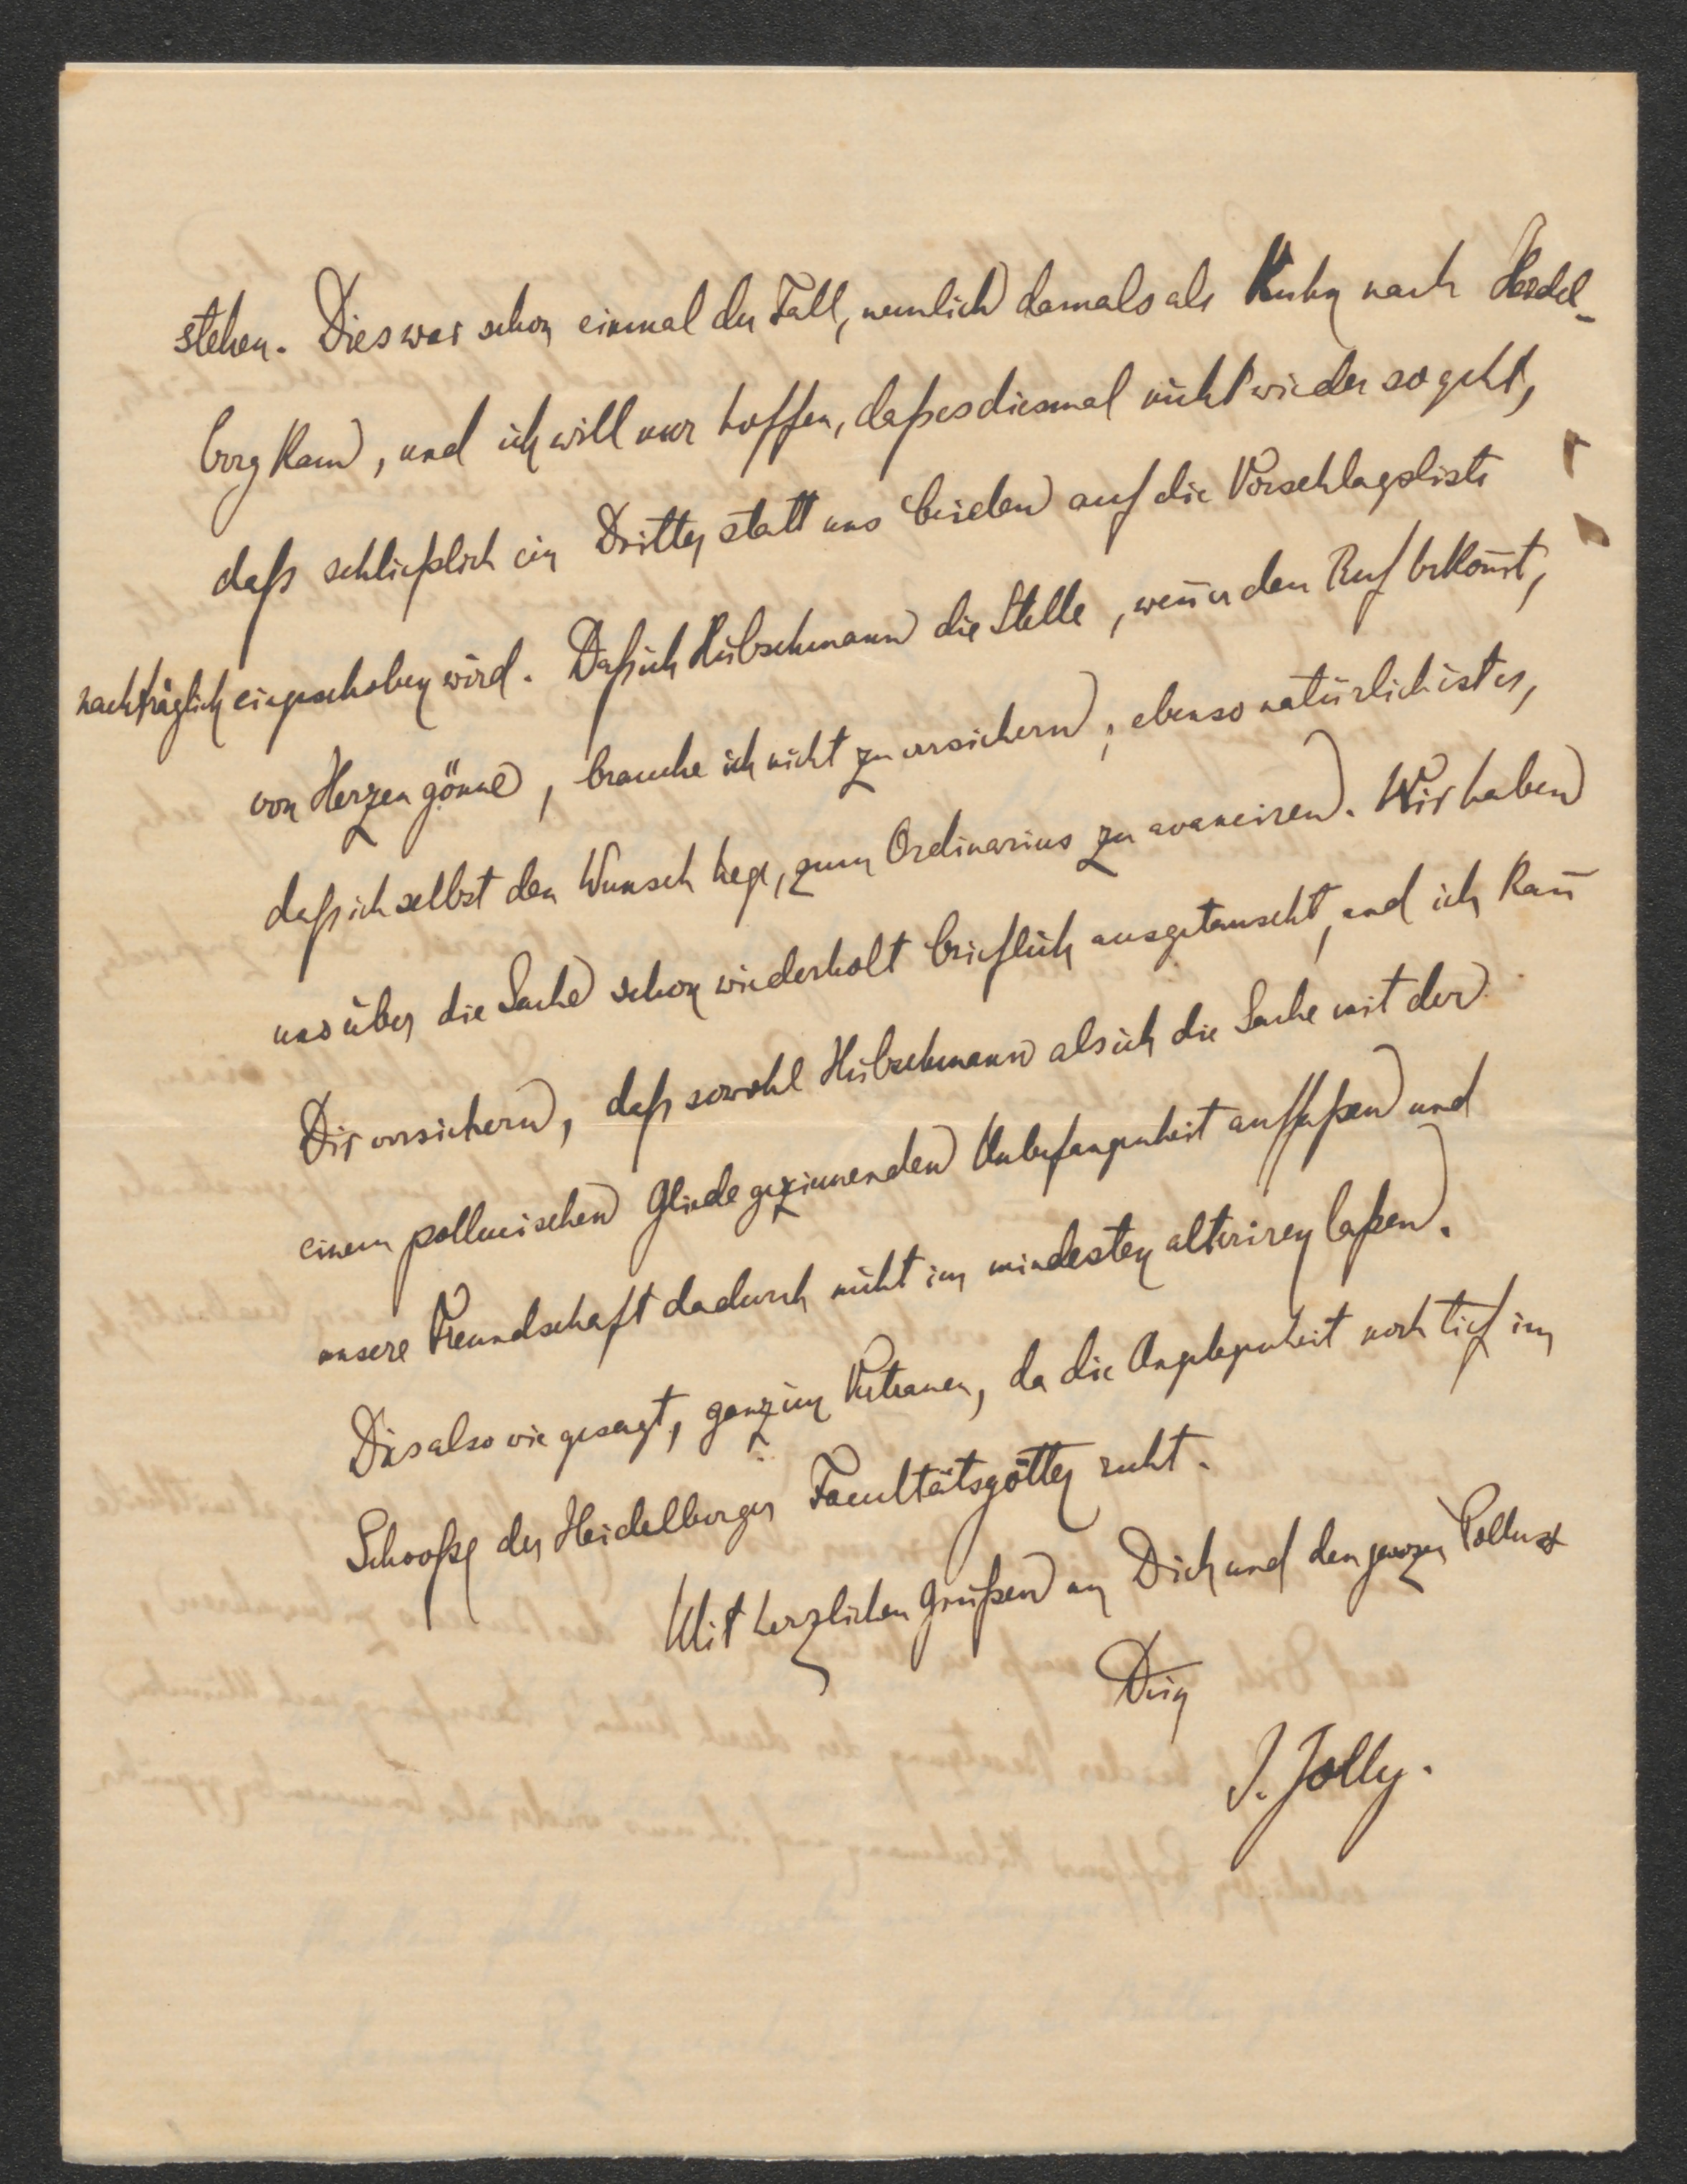 stehen. Dies war schon einmal der Fall, nemlich damals als Kuhn nach Heidel-
berg kam, und ich will nur hoffen, daß es diesmal nicht wieder so geht,
daß schließlich ein Dritter statt uns beiden auf die Vorschlagsliste
nachträglich eingeschoben wird. Daß ich Hübschmann die Stelle, weñ er den Ruf bekom̄t,
von Herzen gönne, brauche ich nicht zu versichern, ebenso natürlich ist es,
daß ich selbst den Wunsch hege, zum Ordinarius zu avanciren. Wir haben
uns über die Sache schon wiederholt brieflich ausgetauscht, und ich kañ
Dir versichern, daß sowohl Hübschmann als ich die Sache mit der
einem pollucischen Gliede geziemenden Unbefangenheit auffaßen und
unsere Freundschaft dadurch nicht im mindesten alteriren laßen.
Dies also wie gesagt, ganz im Vertrauen, da die Angelegenheit noch tief im
Schooße der Heidelberger Facultätsgötter ruht.
Mit herzlichen Grüßen an Dich und den ganzen Pollux
Dein
J. Jolly.